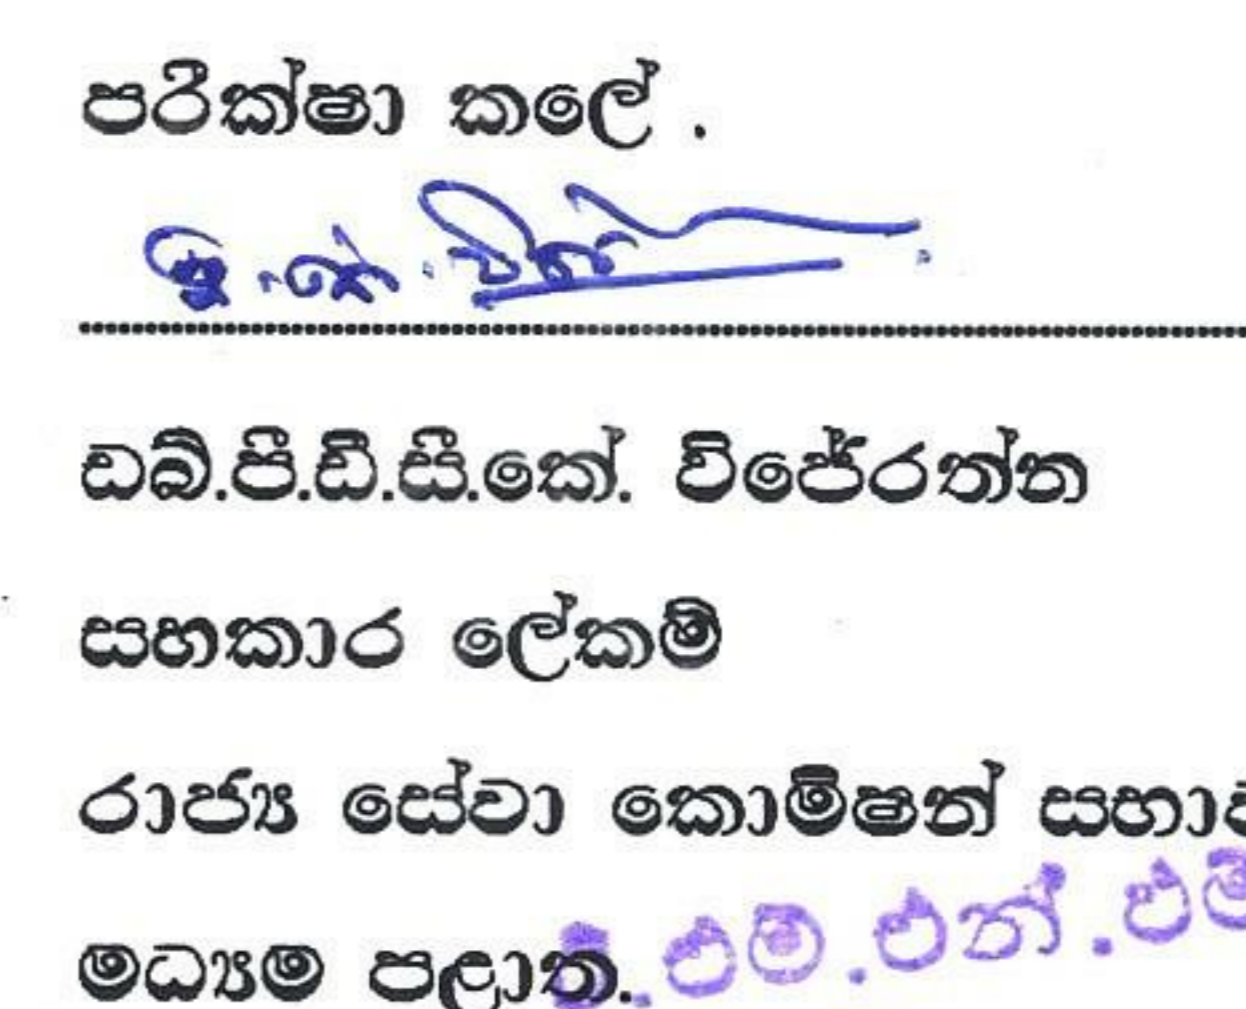 පරීක්ෂා කලේ .
ඩබ්.පී.ඩී.සී.කේ. විජේරත්න
සහකාර ලේකම්
රාජ්‍ය සේවා කොමිෂන් සභාව
මධ්‍යම පළාත.
.එම්.එන්.එම්